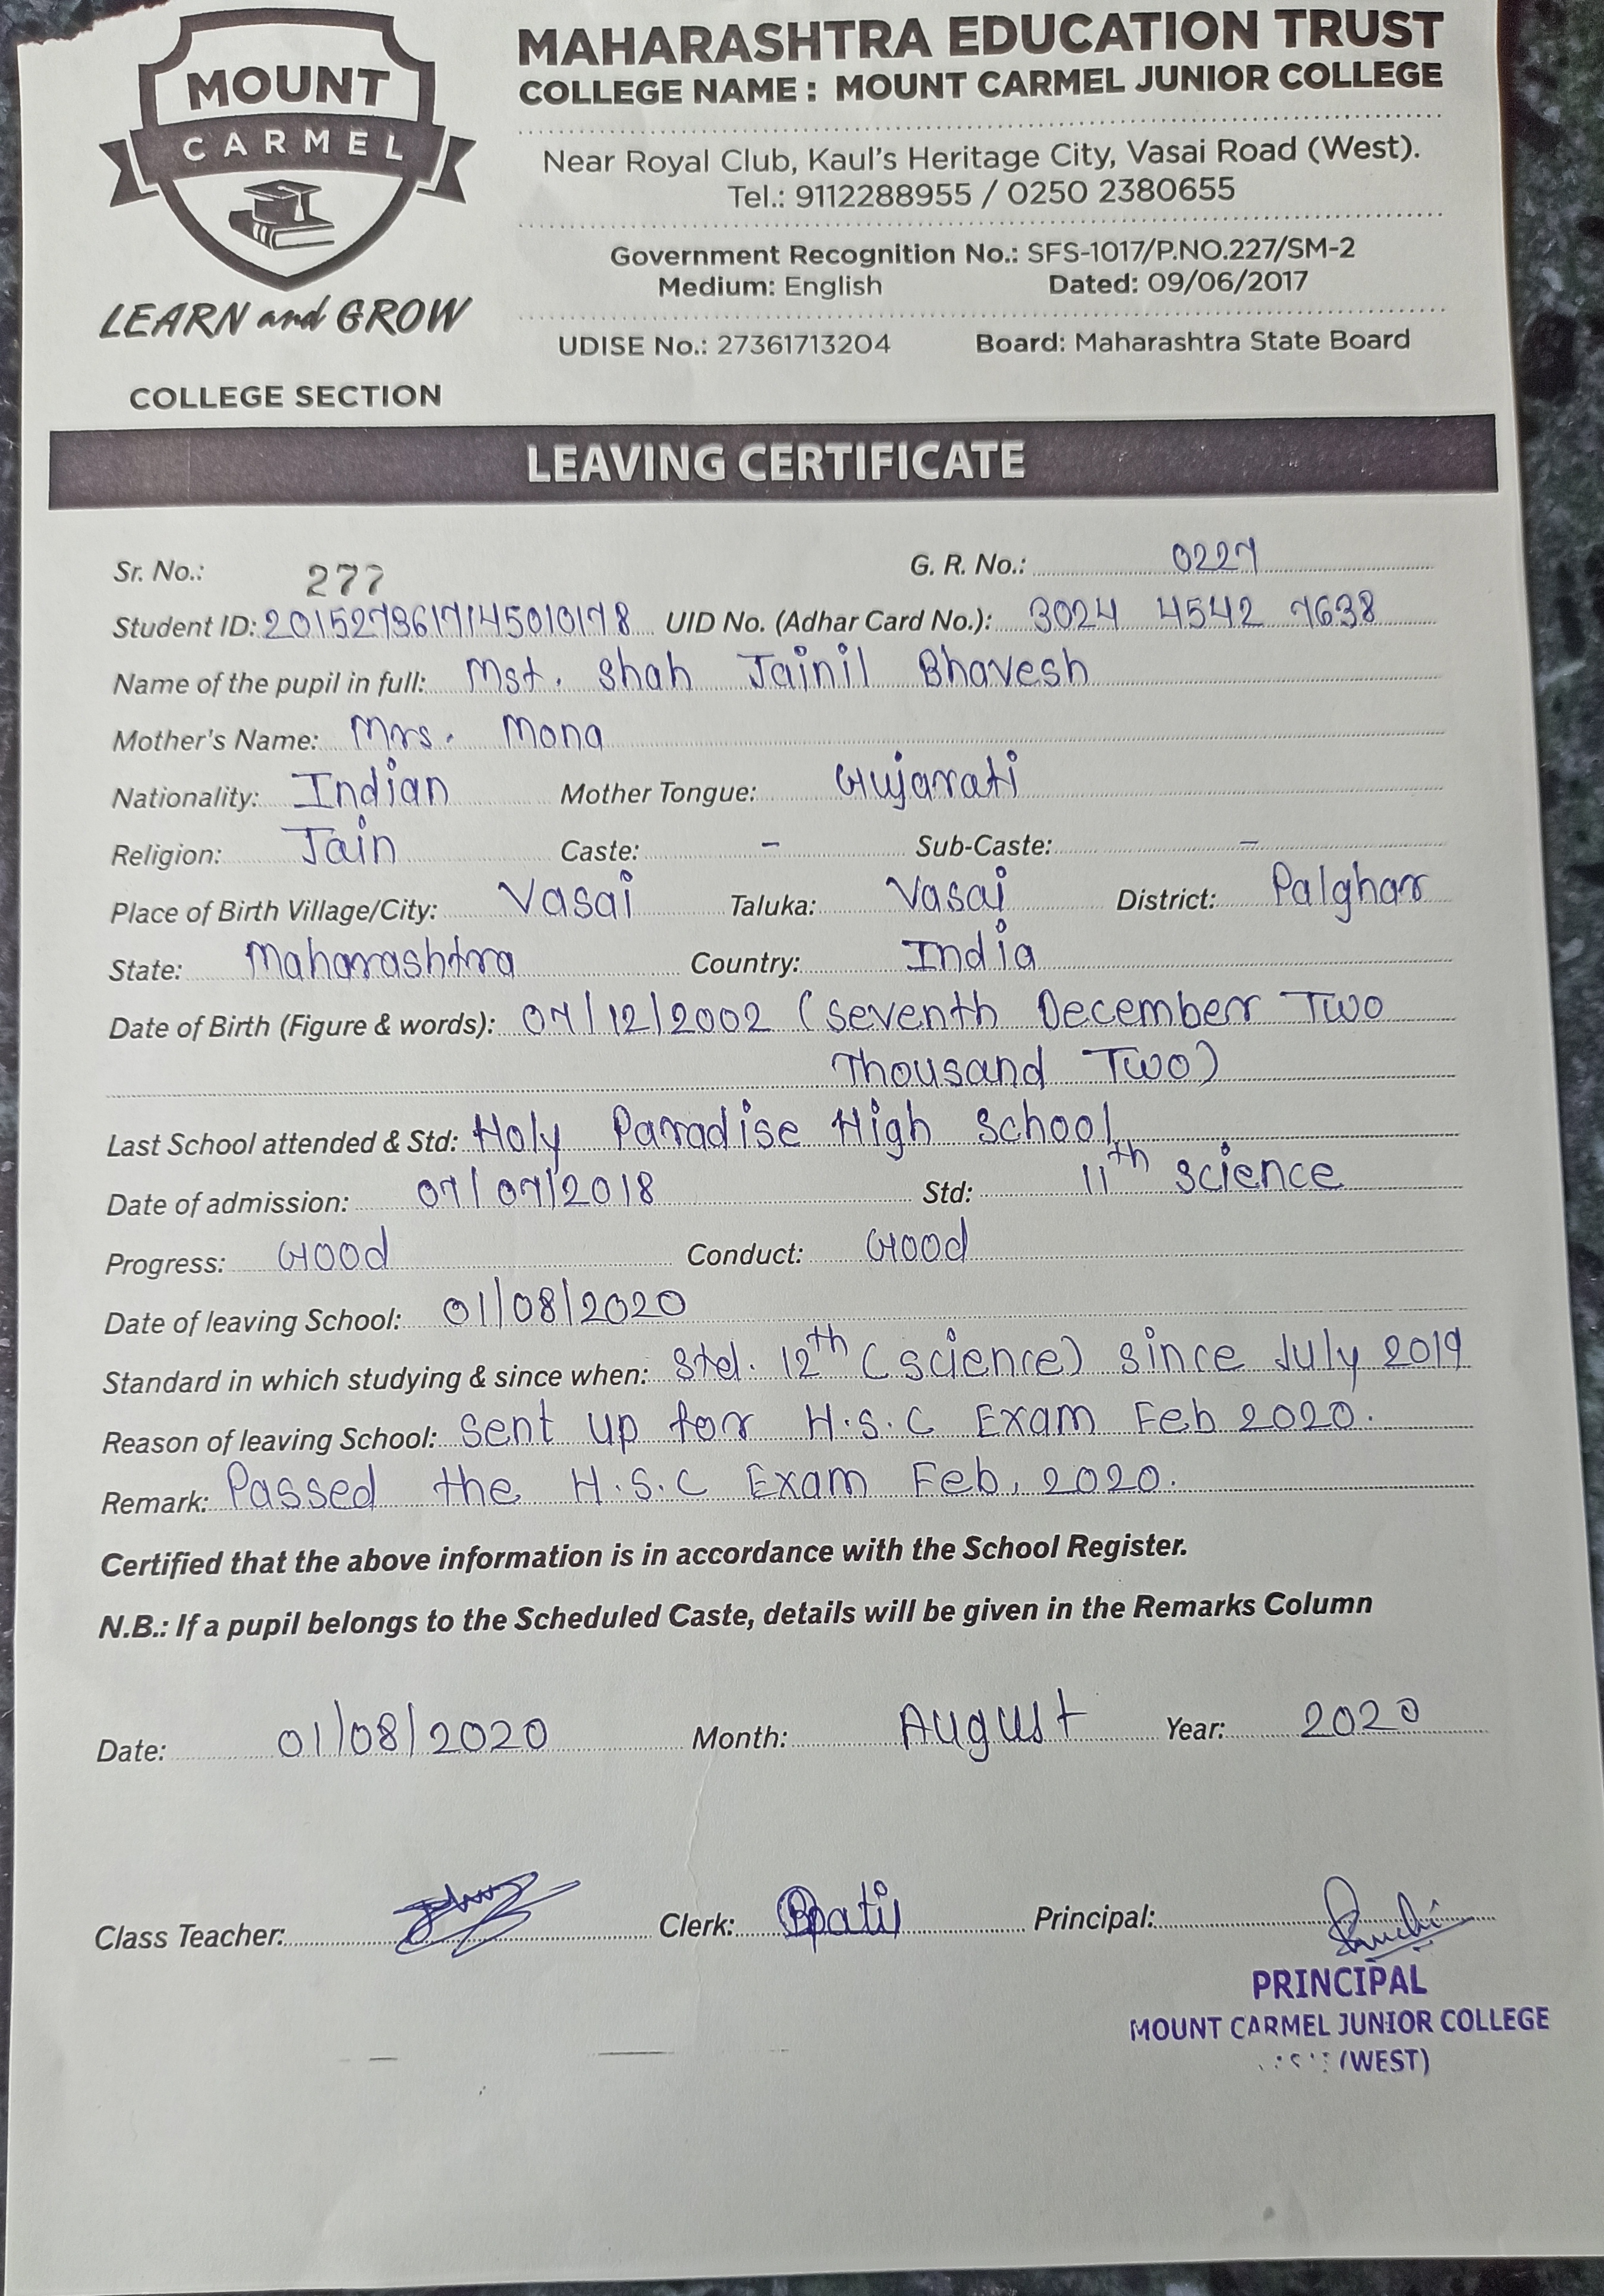 MOUNT
CARMEL
LEARN and GROW
COLLEGE SECTION
MAHARASHTRA EDUCATION TRUST
COLLEGE NAME : MOUNT CARMEL JUNIOR COLLEGE
Near Royal Club, Kaul's Heritage City, Vasai Road (West).
Tel.: 9112288955 / 0250 2380655
Government Recognition No.: SFS-1017/P.NO.227/SM-2
Medium: English Dated: 09/06/2017
UDISE No.: 27361713204 Board: Maharashtra State Board
LEAVING CERTIFICATE
Sr. No.: 277 G. R. No.: 0227
Student ID: 2015273617145010178 UID No. (Adhar Card No.): 3024 4542 7638
Name of the pupil in full: Mst. Shah Jainil Bhavesh
Mother's Name: Mrs. Mona
Nationality: Indian Mother Tongue: Gujarati
Religion: Jain Caste: - Sub-Caste: -
Place of Birth Village/City: Vasai Taluka: Vasai District: Palghar
State: Maharashtra Country: India
Date of Birth (Figure & words): 07/12/2002 (Seventh December Two
Thousand Two)
Last School attended & Std: Holy Paradise High School
Date of admission: 07/07/2018 Std: 11th Science
Progress: Good Conduct: Good
Date of leaving School: 01/08/2020
Standard in which studying & since when: Std. 12th (Science) since July 2019
Reason of leaving School: Sent up for H.S.C Exam Feb 2020.
Remark: Passed the H.S.C Exam Feb, 2020.
Certified that the above information is in accordance with the School Register.
N.B.: If a pupil belongs to the Scheduled Caste, details will be given in the Remarks Column
Date: 01/08/2020 Month: August Year: 2020
Class Teacher: Clerk: Principal:
PRINCIPAL
MOUNT CARMEL JUNIOR COLLEGE
(WEST)